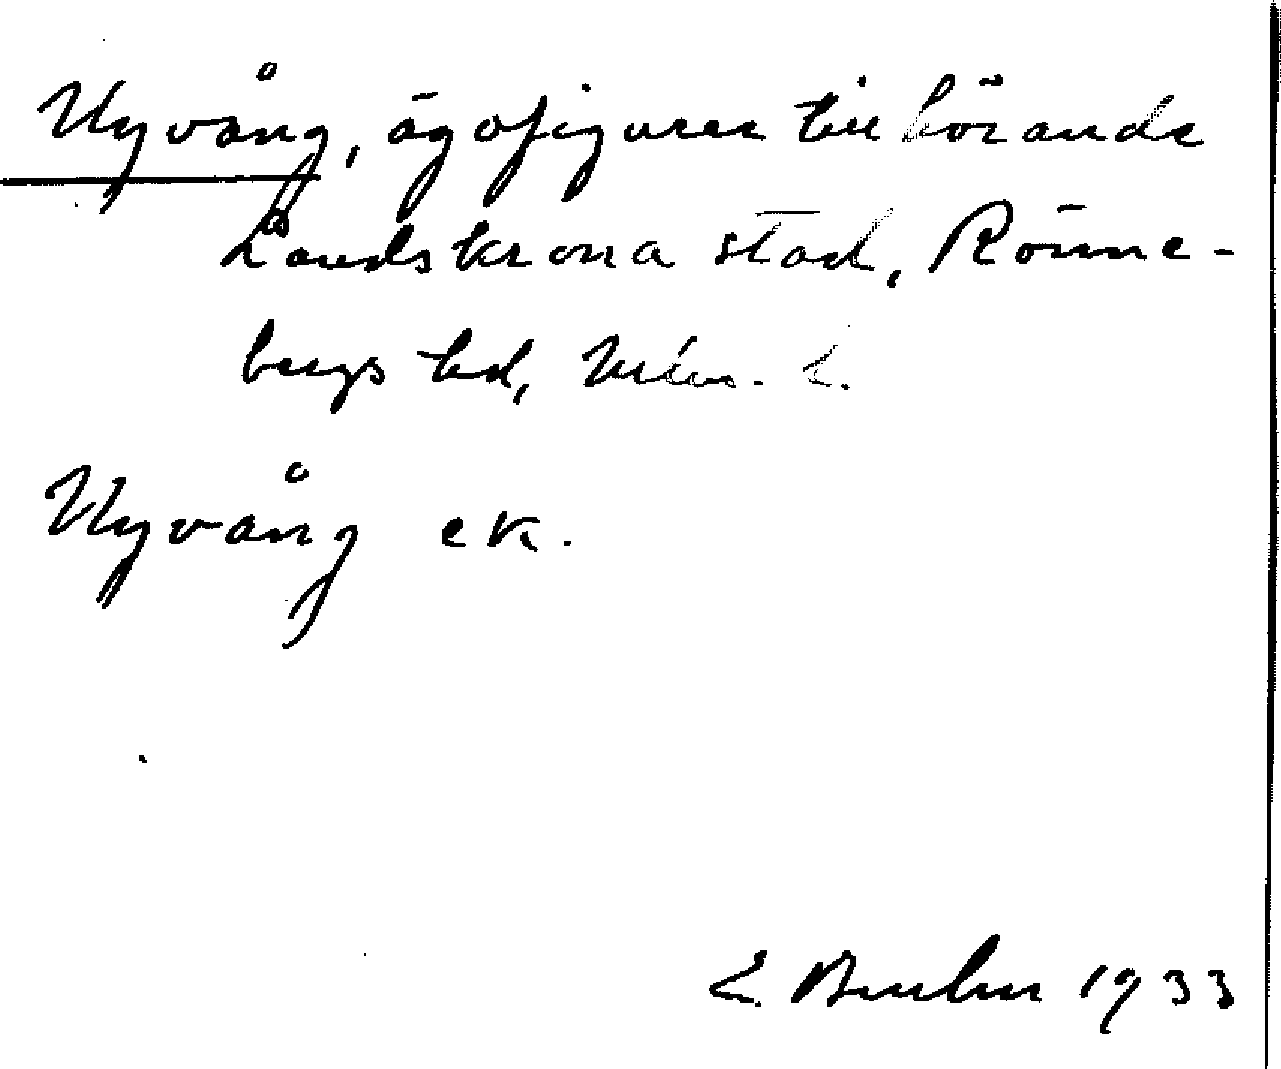 Nyvång, ägofigurer tillhörande
Landskrona stad, Rönne-
bergs hd, Mlm. l.
Nyvång ek.
1933